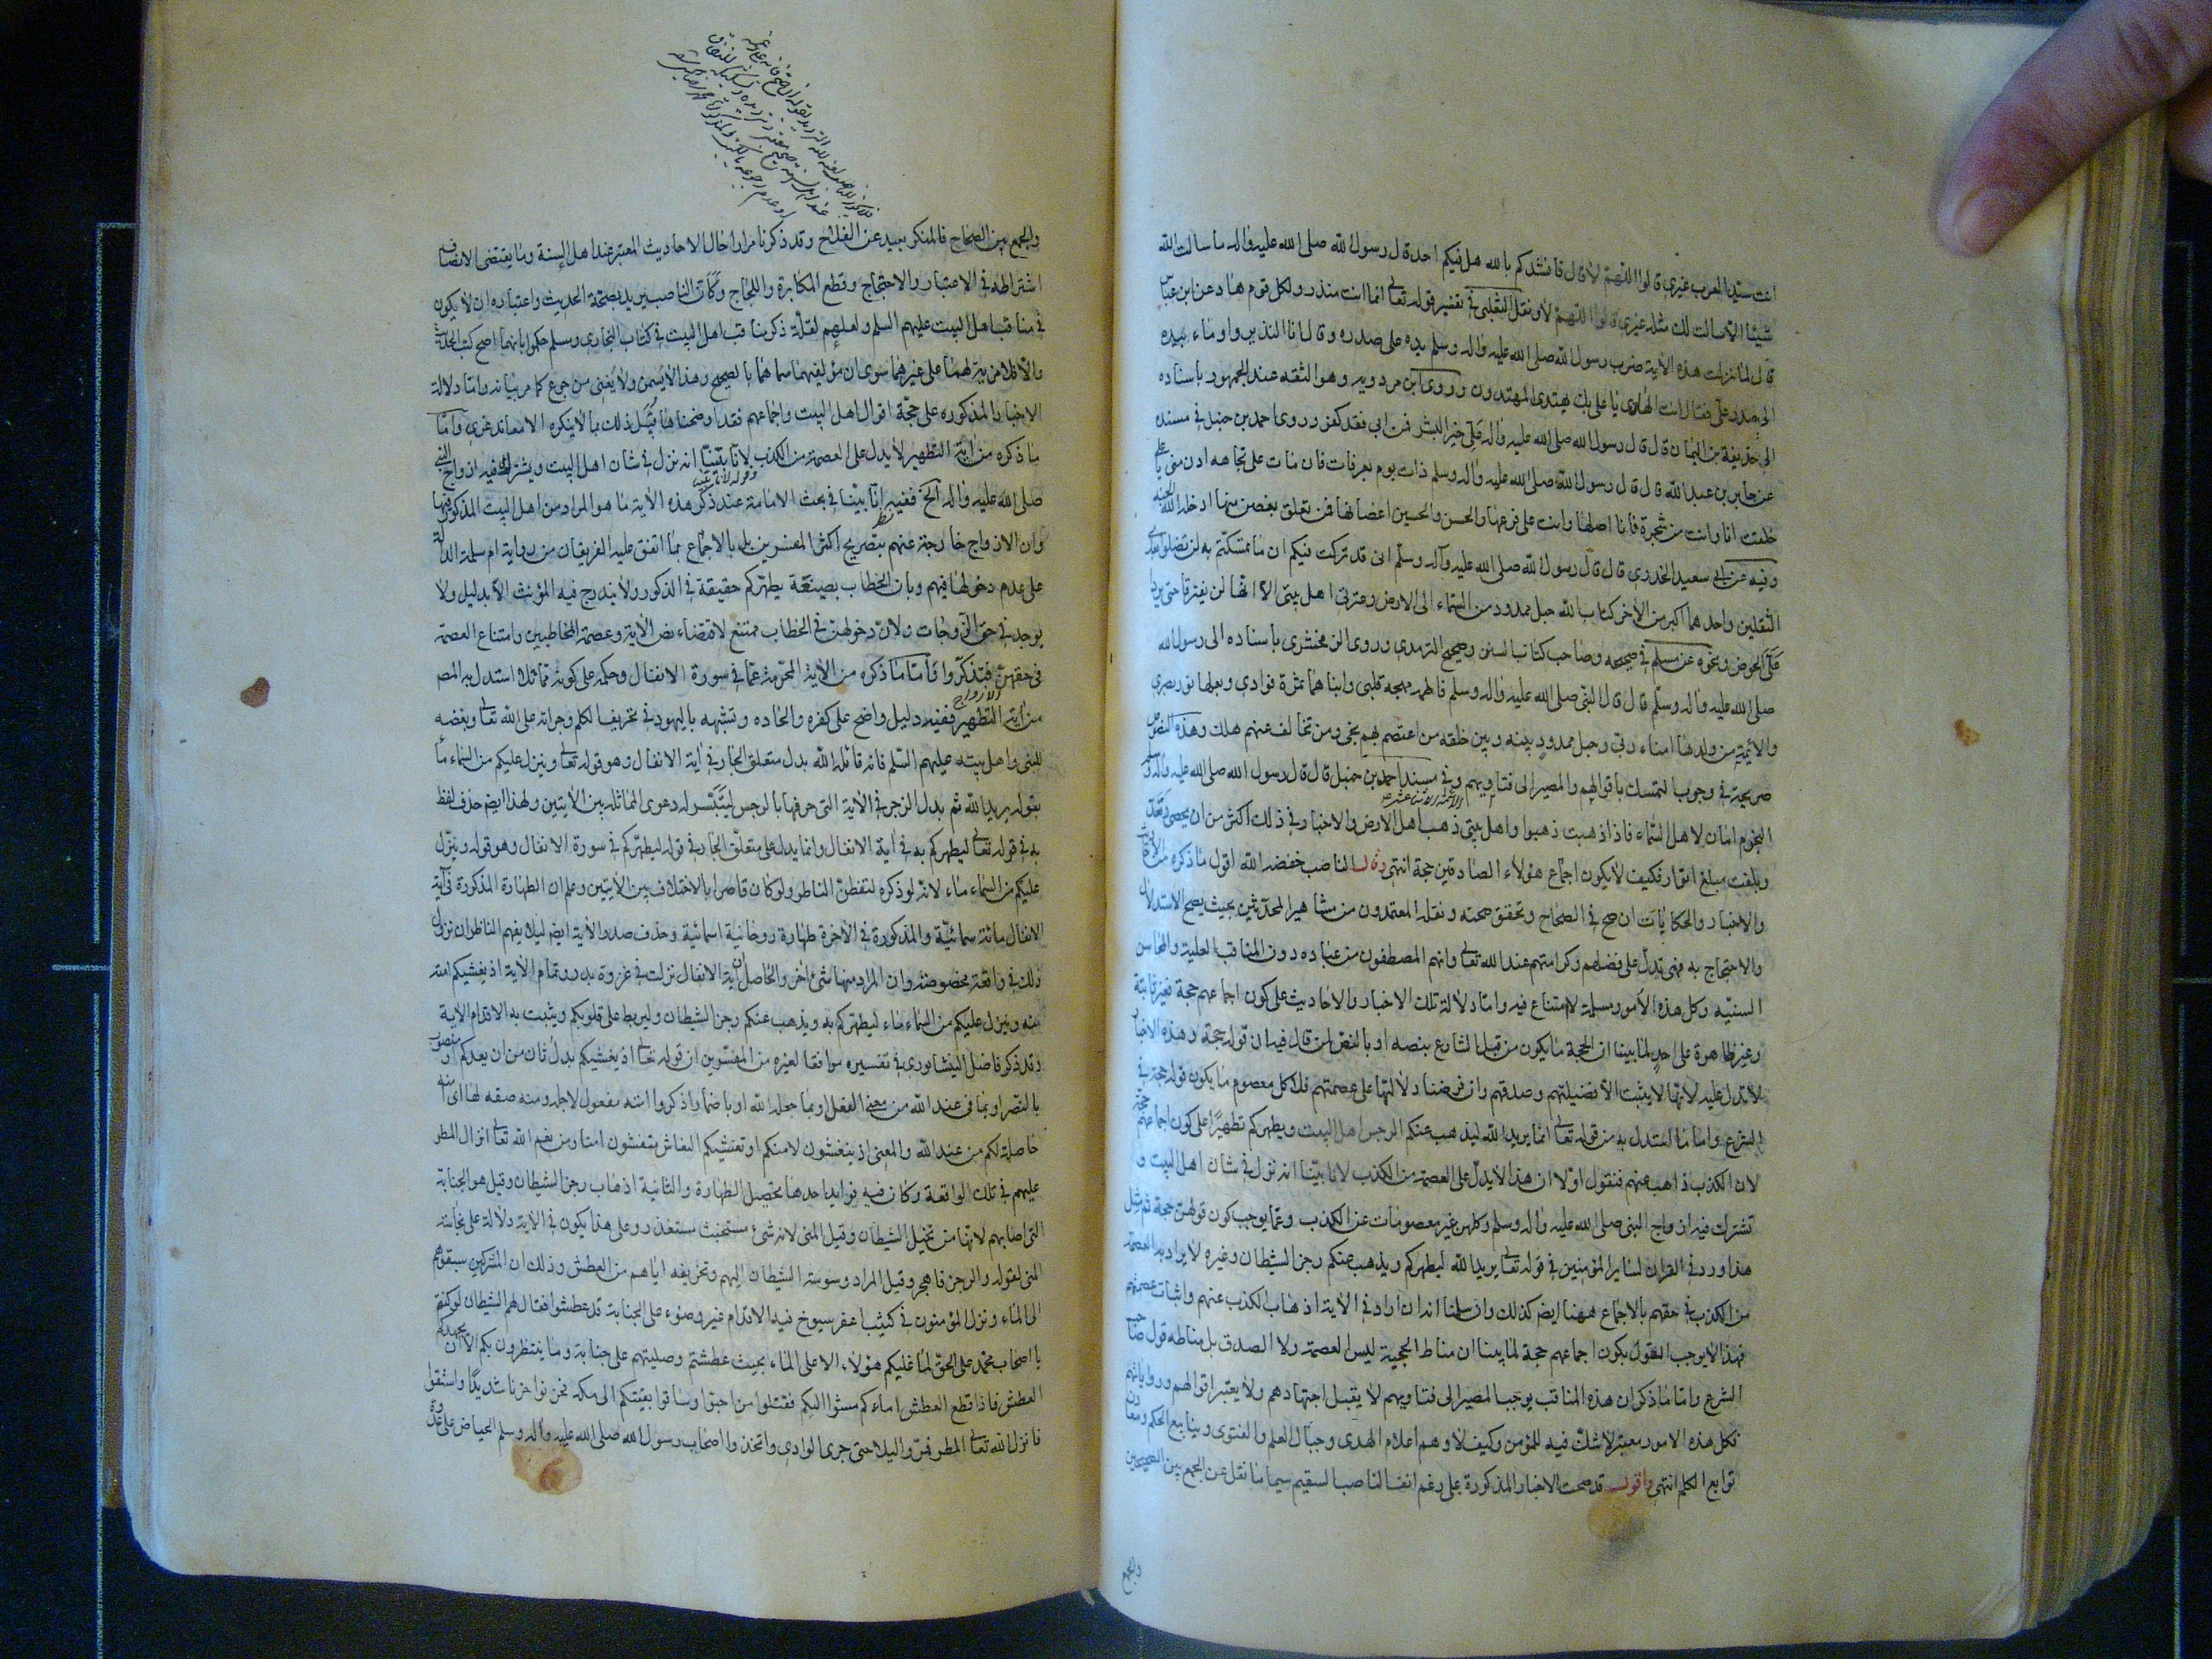 انت سيد العرب غيري قالوا اللهم لا قال فانشدكم بالله هل فيكم احد قال رسول الله صلى الله عليه واله ما سالت الله
شيئا الا سالت لك مثله غيري قالوا اللهم لا ونقل الثعلبي في تفسير قوله تعالى انما انت منذر ولكل قوم هاد عن ابن عباس
قال لما نزلت هذه الاية ضرب رسول الله صلى الله عليه واله وسلم يده على صدره وقال انا النذير واوماء بيده
الى صدر علي فقال انت الهادي يا علي بك يهتدى المهتدون وروى ابن مردويه وهو الثقه عند الجمهور باسناده
الى حذيفة بن اليمان قال قال رسول الله صلى الله عليه واله علي خير البشر فمن ابى فقد كفر وروى احمد بن حنبل في مسنده
عن جابر بن عبد الله قال قال رسول الله صلى الله عليه واله وسلم ذات يوم بعرفات فان مات على تجاهه ادن مني يا علي
خلقت انا وانت من شجرة فانا اصلها وانت على فرعها والحسن والحسين اغصانها فمن تعلق بغصن منها ادخله الله الجنة
وفيه عن ابي سعيد الخدري قال قال رسول الله صلى الله عليه وآله وسلم اني قد تركت فيكم ان ما تمسكتم به لن تضلوا بعدي
الثقلين واحدهما اكبر من الاخر كتاب الله حبل ممدود من السماء الى الارض وعترتي اهل بيتي الا انهما لن يفترقا حتى يردا
علي الحوض ونحوه عن مسلم في صحيحه وصاحب كتاب السنن وصحيح الترمدي وروى الزمخشري باسناده الى رسول الله
صلى الله عليه واله وسلم قال قال النبي صلى الله عليه واله وسلم فاطمه مهجة قلبي وابناهما ثمرة فوادي وبعلها نور بصري
والائمة من ولدها امناء ربي وحبل ممدود بينه وبين خلقه من اعتصم بهم نجى ومن تخالف عنهم هلك وهذه النصوص
صريحة في وجوب التمسك باقوالهم والمصير الى فتاويهم وفي مسند احمد بن حنبل قال قال رسول الله صلى الله عليه واله وسلم
النجوم امان لاهل السماء فاذا ذهبت ذهبوا واهل بيتي ذهب اهل الارض والاخبار في ذلك اكثر من ان يحصى وتعد
وبلغت مبلغ التواتر فكيف لا يكون اجماع هؤلاء الصادقين حجة انتهى قال الناصب خفضه الله اقول ما ذكره من الاحاديث
والاخبار والحكايات ان صح في الصحاح وتحقق صحته ونقله المعتمدون من مشاهير المحدثين بحيث يصح الاستدلال
والاحتجاج به فهي تدل على فضلهم وكرامتهم عند الله تعالى وانهم المصطفون من عباده دون المناقب العلية والمحاسن
السنيه وكل هذه الامور مسلمة لا امتناع فيه واما دلالة تلك الاخبار والاحاديث على كون اجماعهم حجة فغير ثابتة
وغير ظاهرة على احد لما بينا ان الحجة ما يكون من قبل الشارع بنصه او بالنص لمن قال فيه ان قوله حجة وهذه الاخبار
لا تدل عليه لانها لا يثبت الا فضيلتهم وصدقهم وان فرضنا دلالتها على عصمتهم فلا كل معصوم ما يكون قوله حجة في
الشرع واما ما استدل به من قوله تعالى انما يريد الله ليذهب عنكم الرجس اهل البيت ويطهركم تطهيرا على كون اجماعهم حجة
لان الكذب ذاهب عنهم فنقول اولا ان هذا لا يدل على العصمة من الكذب لانا بينا انه نزل في شان اهل البيت و
تشترك فيه ازواج النبي صلى الله عليه واله وسلم وكلهن غير معصومات عن الكذب وعما يوجب كون قولهن حجة ثم مثل
هذا ورد في القران لساير المؤمنين في قوله تعالى يريد الله ليطهركم ويذهب عنكم رجز الشيطان وغيره لا يراد به العصمة
من الكذب في حقهم بالاجماع فههنا ايضا كذلك وان سلمنا انه ان اراد في الاية اذهاب الكذب عنهم واثبات عصمتهم
فهذا لا يوجب القول بكون اجماعهم حجة لما بينا ان مناط الحجية ليس العصمة ولا الصدق بل مناطه قول صاحب
الشرع واما ما ذكر ان هذه المناقب يوجب المصير الى فتاويهم لا يقبل اجتهادهم ولا يعتبر اقوالهم ورواياتهم
فكل هذه الامور معتبر لا شك فيه للمؤمن وكيف لا وهم اعلام الهدى وجبال العلم والفتوى وينابيع الحكم ومعادن
توابع الكلم انتهى واقول قد صحت الاخبار المذكورة على رغم انف الناصب السقيم سيما ما نقل عن الجمع بين الصحيحين
والجمع
والجمع بين الصحاح فالمنكر بعيد عن الفلاح وقد ذكرنا مرارا حال الاحاديث المعتبر عند اهل السنة وما يقتضى الانصاف
اشتراطه في الاعتبار والاحتجاج وقطع المكابرة واللجاج وكان الناصب يريد بصحة الحديث واعتباره ان لا يكون
في مناقب اهل البيت عليهم السلم ولعلهم لقلة ذكر مناقب اهل البيت في كتاب البخاري ومسلم حكموا بانهما اصح كتب الحديث
والا فلا مزية لهما على غيرهما سوى ان مؤلفيهما سماهما بالصحيح وهذا لا يسمن ولا يغنى من جوع كما مر بيانه واما دلالة
الاخبار المذكوره على حجة اقوال اهل البيت واجماعهم فقد اوضحناها قبيل ذلك بما لا ينكره الا معاند غوي واما
ما ذكره من اية التطهير لا يدل على العصمة من الكذب لانا بينا انه نزل في شان اهل البيت ويشترك فيه ازواج النبي
صلى الله عليه واله الخ ففيه انا بينا في بحث الامامة عند ذكر هذه الاية ما هو المراد من اهل البيت المذكور فيها
وان الازواج خارجة عنهم بتصريح اكثر المفسرين بل بالاجماع بما اتفق عليه الفريقان من رواية ام سلمة الدالة
على عدم دخولها فيهم وبان الخطاب بصيغة يطهركم حقيقة في الذكور ولا يندرج فيه المؤنث الا بدليل ولا
يوجد في حق الزوجات ولان دخولهن في الخطاب ممتنع لاقتضاء نص الاية وعصمة المخاطبين وامتناع العصمة
في حقهن فتذكروا فاما ما ذكره من الاية المحرفة عما في سورة الانفال وحكمه على كونه مماثلا لما استدل به المص
من اية التطهير ففيه دليل واضح على كفره والحاده وتشبهه باليهود في تحريف الكلم وجراته على الله تعالى وبغضه
للنبي واهل بيته عليهم السلم فانه قاتله الله بدل متعلق الجار في اية الانفال وهو قوله تعالى وينزل عليكم من السماء ماء
بقوله يريد الله ثم بدل الرجز في الاية التي حرفها بالرجس ليتكسر له دعوى المماثله بين الايتين ولهذا ايضا حذف لفظ
به في قوله تعالى ليطهركم به في اية الانفال وانما يدل على متعلق الجار في قوله ليطهركم في سورة الانفال وهو قوله وينزل
عليكم من السماء ماء لانه لو ذكره لتفطن الناظر ولو كان قاصرا بالاختلاف بين الايتين وعلم ان الطهارة المذكورة في اية
الانفال مائية سمائية والمذكورة في الاخرة طهارة روحانية اسمائية وحذف صدر الاية ايضا ليلا يفهم الناظر ان نزول
ذلك في واقعة مخصوصة وان المراد منها شئ اخر والحاصل ان اية الانفال نزلت في غزوة بدر وتمام الاية اذ يغشيكم امنة
منه وينزل عليكم من السماء ماء ليطهركم به ويذهب عنكم رجز الشيطان وليربط على قلوبكم ويثبت به الاقدام الاية
وقد ذكر فاضل النيشابوري في تفسيره موافقا لغيره من المفسرين ان قوله تعالى اذ يغشيكم بدل ثان من ان يعدكم او منصوب
بالنصر او بما في عند الله من معنى الفعل او بما جعله الله او باضمار اذكروا امنة مفعول لاجله ومنه صفه لها اي امنه
حاصلة لكم من عند الله والمعنى اذ يتغشون لامنكم او تغشيكم النعاش يتغشون امنا ومن نعم الله تعالى انزال المطر
عليهم في تلك الواقعة وكان فيه فوايد احدها تحصيل الطهارة والثانية اذهاب رجز الشيطان وقيل هو الجنابة
التي اصابهم لانها من تخييل الشيطان وقيل المني لانه شئ مستخبث مستقذر وعلى هذا يكون في الاية دلالة على نجاسة
المني لقوله والرجز فاهجر وقيل المراد وسوسة الشيطان اليهم وتخويفه اياهم من العطش وذلك ان المشركين سبقوهم
الى الماء ونزل المؤمنون في كثيب اعفر تسوخ فيه الاقدام غير وضوء على الجنابة قد عطشوا فقال لهم الشيطان لو كنتم
يا اصحاب محمد على الحق لما غلبكم هؤلاء الا على الماء بحيث عطشتم وصليتم على جنابة وما ينتظرون بكم الا ان يجهدكم
العطش فاذا قطع العطش اماءكم مشوا اليكم فقتلوا من احبوا وساقوا بقيتكم الى مكه فحزنوا حزنا شديدا واشفقوا
فانزل الله تعالى المطر فمروا ليلا حتى جرى الوادي واتخذوا اصحاب رسول الله صلى الله عليه واله وسلم الحياض على